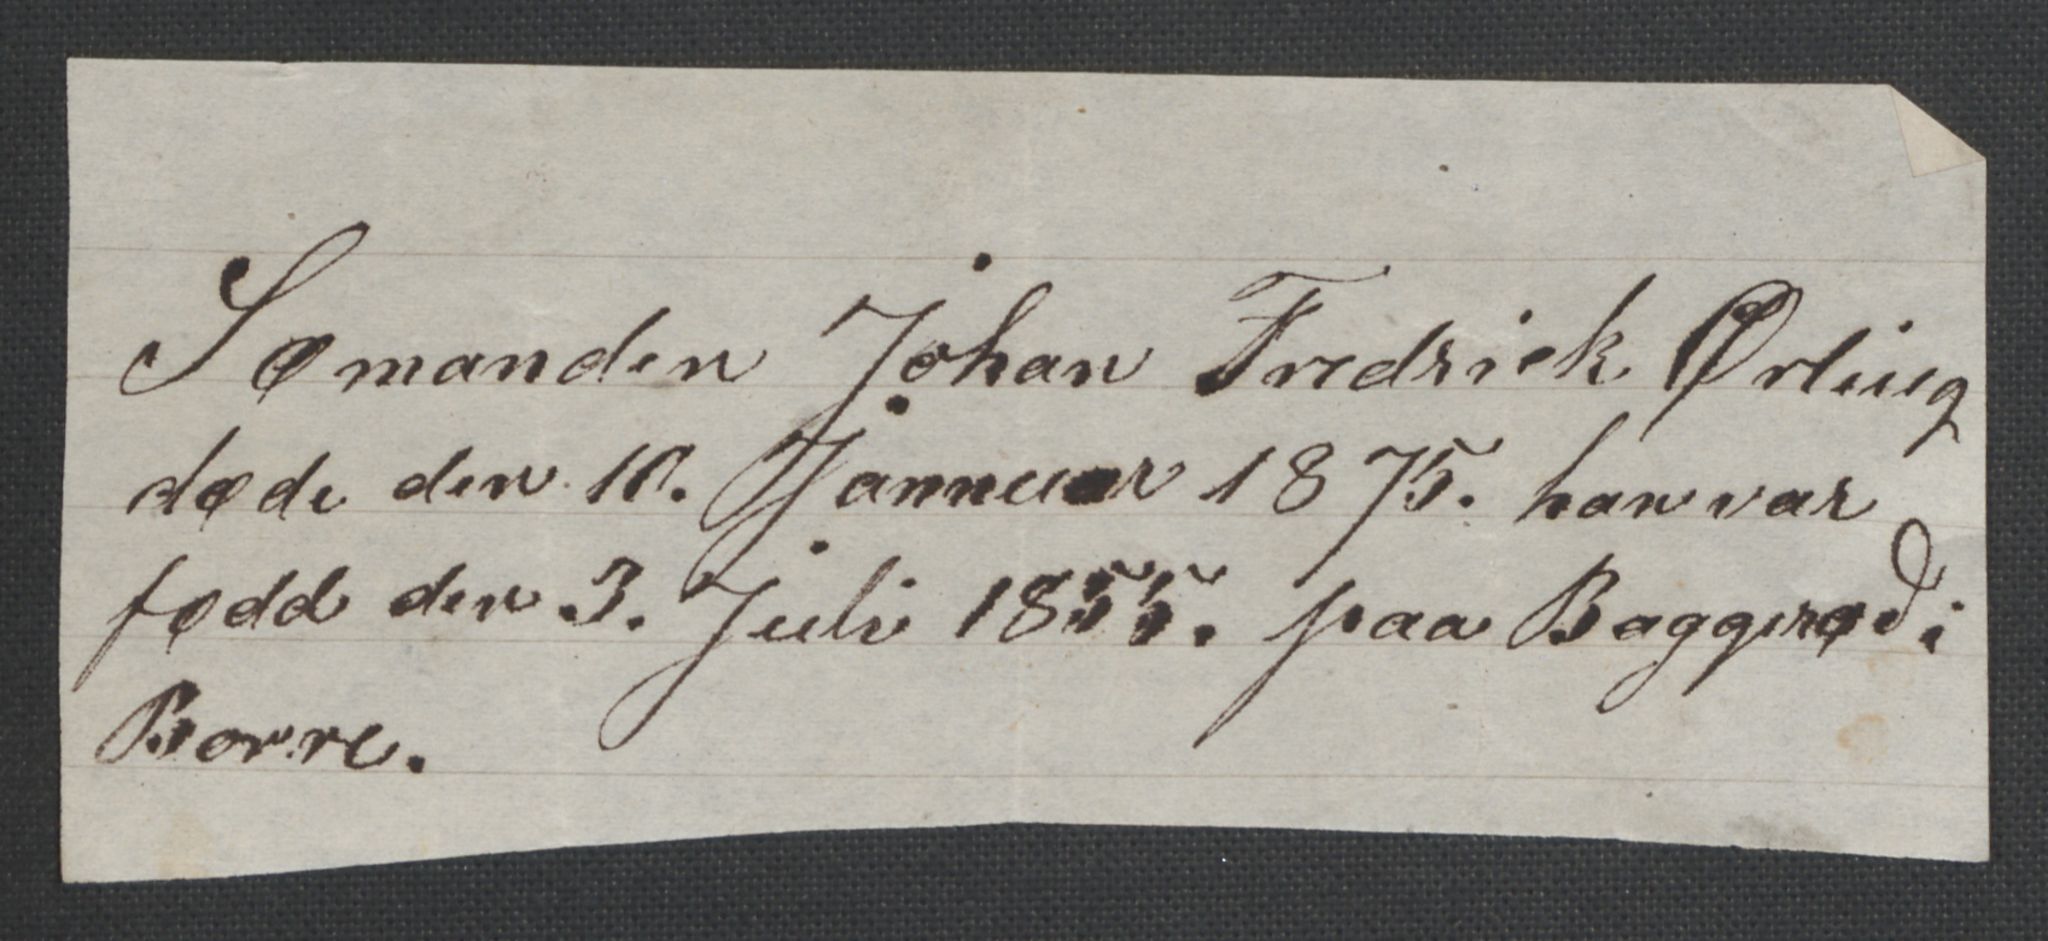 Sømanden Johan Fredrick Ørling
døde den 10. Jannuar 1875. han var
fødd den 3. Juli 1855. paa Baggerød i
Borre.